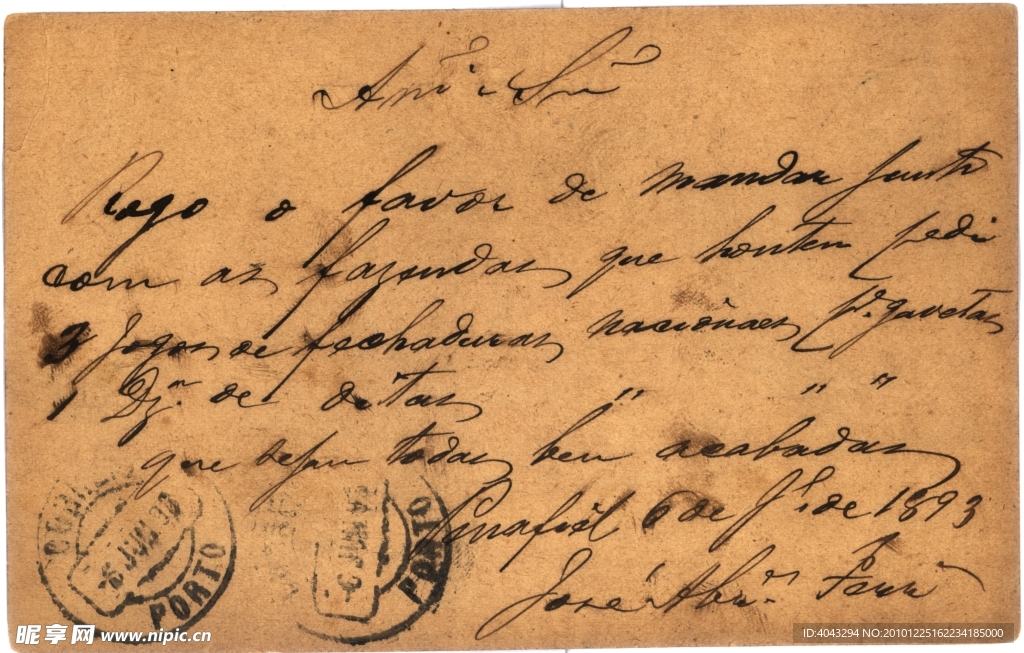 Am.º e Sn.r
Rogo o favor de mandar junto
com as fazendas que hontem pedi
3 Jogos de fechaduras nacionaes p.ª gavetas
1 Dz.ª de ditas " " "
que sejam todas bem acabadas
Penafiel 6 de J.º de 1893
José
PORTO
PORTO
昵享网 www.nipic.cn
ID:4043294 NO:20101225162234185000